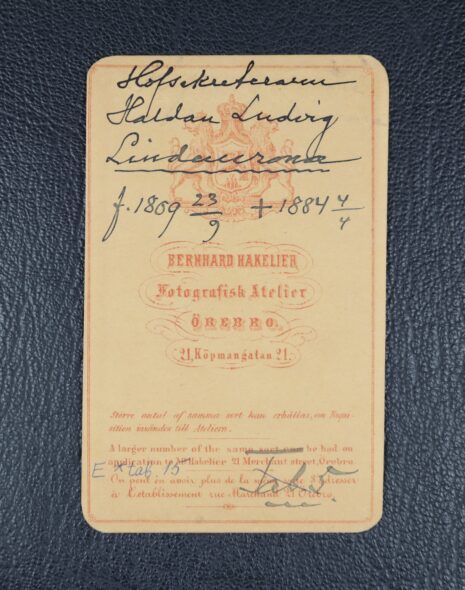 Hofsekreteraren
Haldan Ludvig
f. 1809 23/9 + 1884 4/4
BERNHARD HAKELIER
Fotografisk Atelier
ÖREBRO.
21, Köpmangatan 21.
Större antal af samma sort kan erhållas, om Requi-
sition insändes till Ateliern.
A larger number of the same sort can be had on
application to Mr Hakelier 21 Merchant street, Örebro.
On peut en avoir plus de la même S'adresser
à l'établissement rue Marchand 21 Örebro.
E
tab. 15